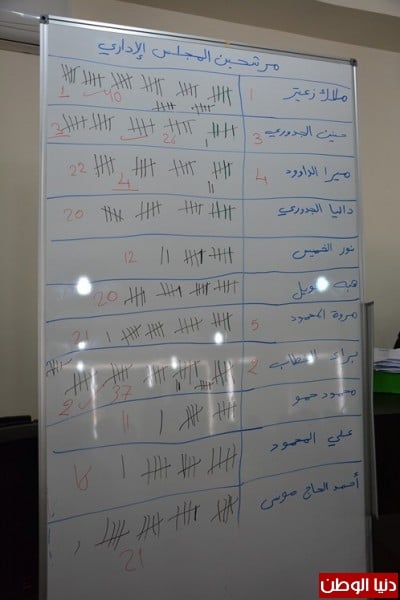 مرشحين المجلس الإداري
ملاك زعيتر 1 40 1
حسين الجدوري 3 26 3
ميرا الداوود 4 4 22
داليا الجدوري 20
نور الخميس 12
هبة 20
مروة المحمود 5 21
براء الخطاب 2 37 2
محمود حمو 11
علي المحمود 16
أحمد الحاج موسى
21
دنيا الوطن